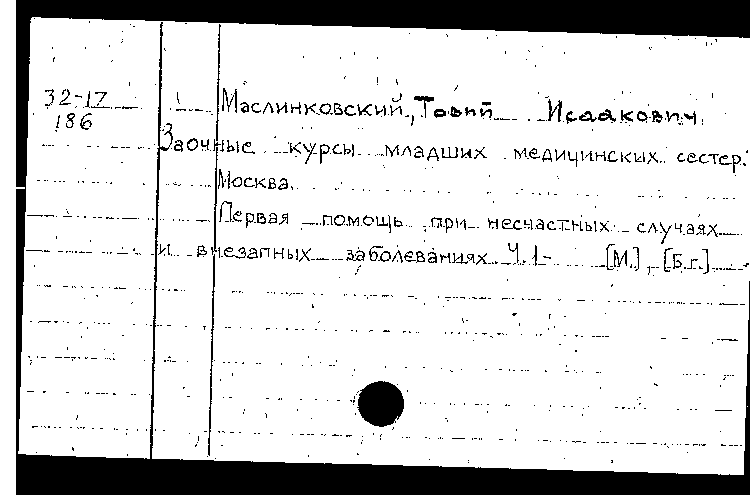 32-17 Маслинковский, Товий Исаакович.
186
Заочные курсы младших медицинских сестер.
Москва.
Первая помощь при несчастных случаях
и внезапных заболеваниях Ч.1- [М.], [Б.г.]